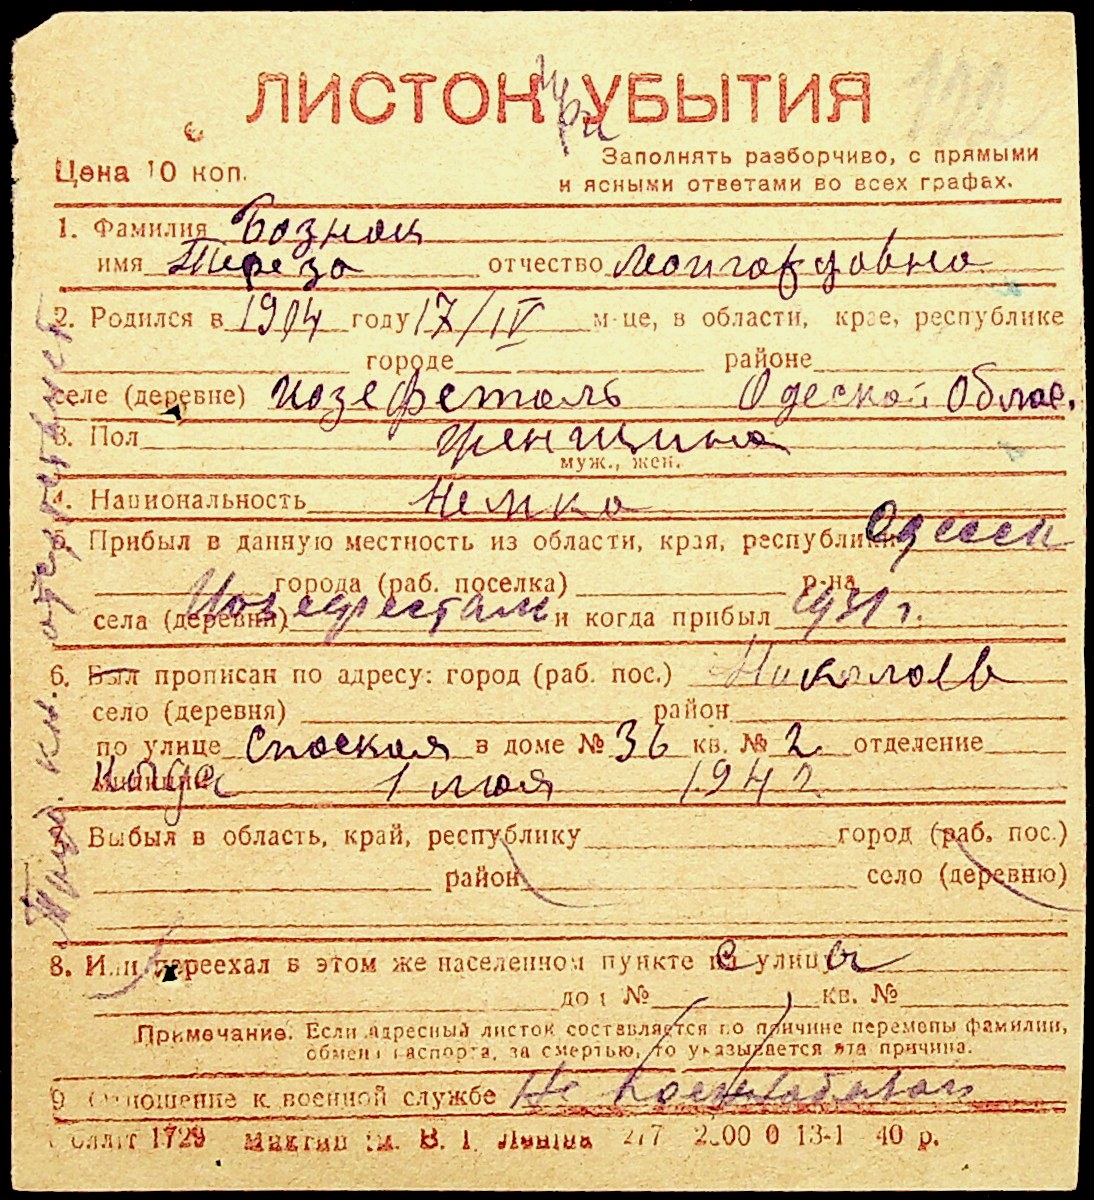 ЛИСТОК УБЫТИЯ
Цена 10 коп.
Заполнять разборчиво, с прямыми
и ясными ответами во всех графах.
1. Фамилия Бознац
имя Тереза отчество
2. Родился в 1914 году 17/IV м-це, в области, крае, республике
городе районе
селе (деревне) Иозефсталь Одеской Облас.
3. Пол женщина
муж., жен.
4. Национальность Немка
5. Прибыл в данную местность из области, края, республики Одесск
города (раб. поселка) р-на
села (деревни) Иозефесталь и когда прибыл 1931 г.
6. Был прописан по адресу: город (раб. пос.) Николаев
село (деревня) район
по улице Споская в доме № 36 кв. № 2 отделение
милиции Когда 1 мая 1942
7. Выбыл в область, край, республику город (раб. пос.)
район село (деревню)
8. Или переехал в этом же населенном пункте на улицу
дом № кв. №
Примечание. Если адресный листок составляется по причине перемены фамилии,
обмена паспорта, за смертью, то указывается эта причина.
9. Отношение к военной службе Не
Облліт 1729 им. В. І. Леніна 277 2000 0 13-1 40 р.